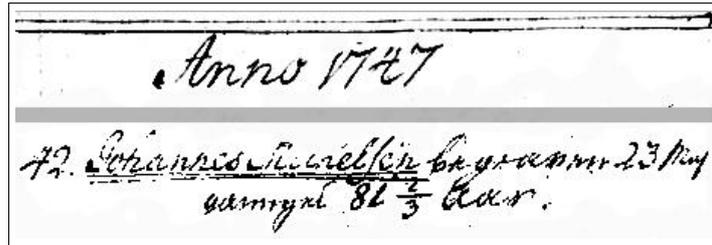 Anno 1747
42. Johannes Michelsen begraven 23 May
gammel 81 2/3 Aar.